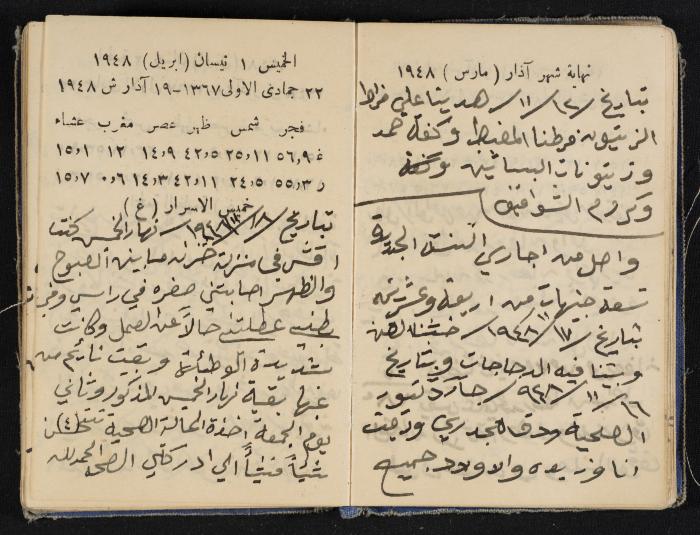 نهاية شهر آذار (مارس) ١٩٤٨
بتاريخ ١٢/١١/ هدينا علي فراط
الزيتون فرطنا المغيط وكفة حمد
وزيتونات البساتين وكفة
وكروم الشوافين
واصل من اجاري البسة الجديدة
تسعة جنيهات من اربعة وعشرين
بتاريخ ١١/١٧/ ١٩٤٨
وبيتنا فيه الدجاجات وبتاريخ
١٦/١١/٩٤٨ دكتور
الصحية ودق الجدري ودقيت
انا وفريده والاولاد جميع
الخميس ١ نيسان (ابريل) ١٩٤٨
٢٢ جمادى الاولى ١٣٦٧-١٩ آذار ش ١٩٤٨
فجر شمس ظهر عصر مغرب عشاء
غ ٩٫٥٦ ١١٫٢٥ ٥٫٤٢ ٩٫١٤ ١٢ ١٫١٥
ز ٣٫٥٥ ٥٫٢٤ ١١٫٤٢ ٣٫١٤ ٦٫٠ ٧٫١٥
خميس الاسرار (غ)
بتاريخ ١٨/١١/ نهار الخميس كنت
اقش في منزلة مابين الصبوح
والظهر اصابتني صفره في راسي وفي
بطني عطلتني حالاً عن العمل وكانت
شديدة الوطئة وبقيت نايم من
غبها بقية نهار الخميس المذكور وثاني
يوم الجمعة اخذة الحالة الصحية تتحسن
(٤)
شيئاً فشيئاً الي ادركتني الصحة الحمدلله